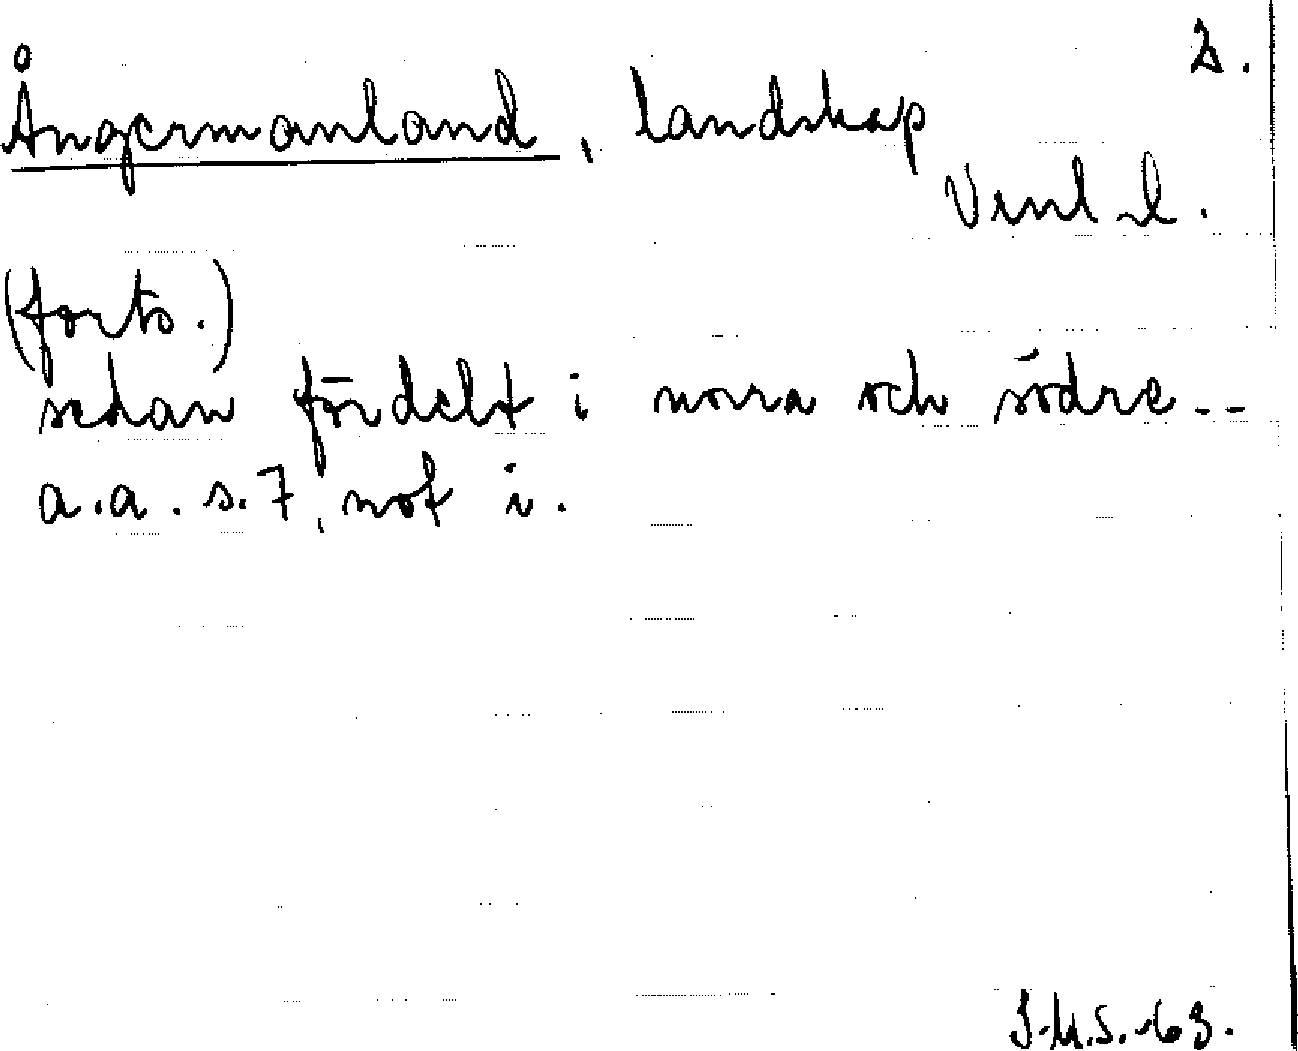 2.
Ångermanland, landskap
(forts.)
sedan fördelt i norra och södra --
a.a. s. 7, not i.
S.M.S. -63.